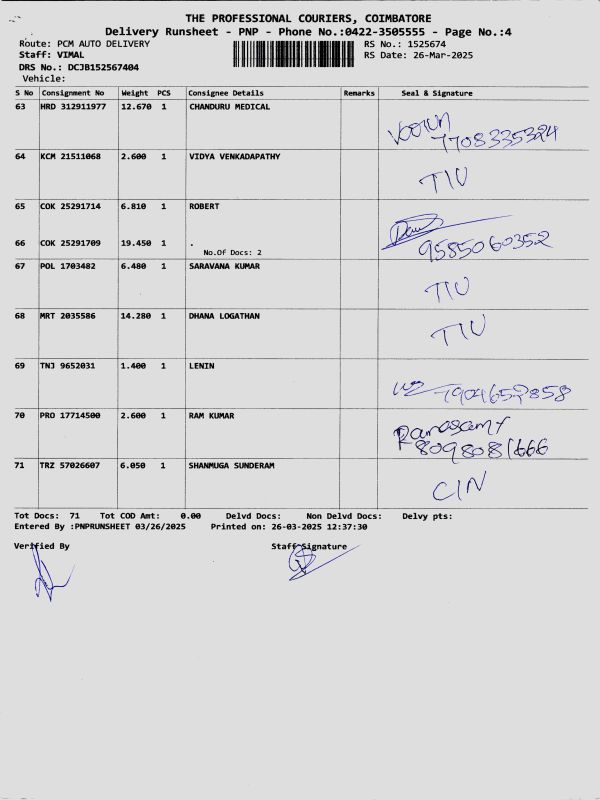 THE PROFESSIONAL COURIERS, COIMBATORE
Delivery Runsheet - PNP - Phone No.:0422-3505555 - Page No.:4
Route: PCM AUTO DELIVERY RS No.: 1525674
Staff: VIMAL RS Date: 26-Mar-2025
DRS No.: DCJB152567404
Vehicle:
S No Consignment No Weight PCS Consignee Details Remarks Seal & Signature
63 HRD 312911977 12.670 1 CHANDURU MEDICAL
7708335324
64 KCM 21511068 2.600 1 VIDYA VENKADAPATHY
TIU
65 COK 25291714 6.810 1 ROBERT
66 COK 25291709 19.450 1 .
No.Of Docs: 2
9585060352
67 POL 1703482 6.480 1 SARAVANA KUMAR
TIU
68 MRT 2035586 14.280 1 DHANA LOGATHAN
TIU
69 TNJ 9652031 1.400 1 LENIN
7904652858
70 PRO 17714500 2.600 1 RAM KUMAR
Ramasamy
8098081666
71 TRZ 57026607 6.050 1 SHANMUGA SUNDERAM
CIN
Tot Docs: 71 Tot COD Amt: 0.00 Delvd Docs: Non Delvd Docs: Delvy pts:
Entered By :PNPRUNSHEET 03/26/2025 Printed on: 26-03-2025 12:37:30
Verified By Staff Signature